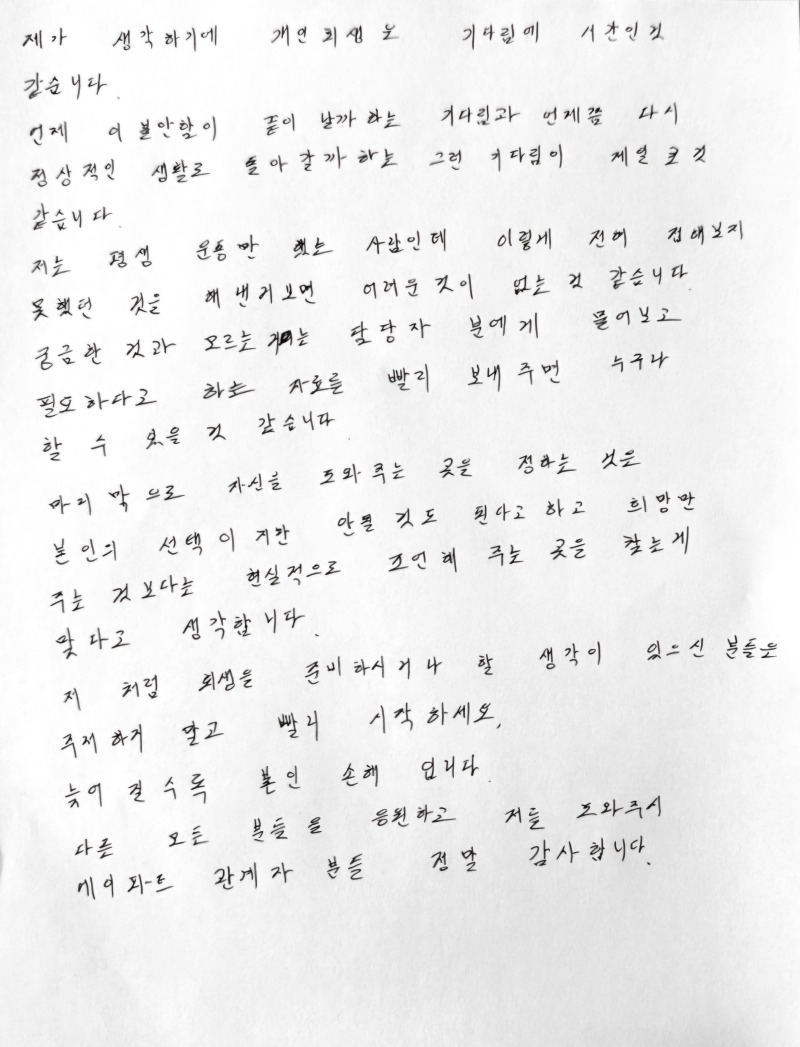 제가 생각하기에 개인회생은 기다림에 시간인것
같습니다.
언제 이 불안함이 끝이 날까 하는 기다림과 언제쯤 다시
정상적인 생활로 돌아갈까 하는 그런 기다림이 제일 큰것
같습니다.
저는 평생 운동만 했는 사람인데 이렇게 전혀 접해보지
못했던 것을 해낸거보면 어려운것이 없는것 같습니다.
궁금한 것과 모르는거는 담당자 분에게 물어보고
필요하다고 하는 자료를 빨리 보내주면 누구나
할 수 있을 것 같습니다.
마지막으로 자신을 도와주는 곳을 정하는 것은
본인의 선택이지만 안될 것도 된다고 하고 희망만
주는 것보다는 현실적으로 조언해 주는 곳을 찾는게
맞다고 생각합니다.
저 처럼 회생을 준비하시거나 할 생각이 있으신 분들은
주저하지 말고 빨리 시작하세요.
늦어질수록 본인 손해 입니다.
다른 모든 분들을 응원하고 저를 도와주시
에이파트 관계자 분들 정말 감사합니다.